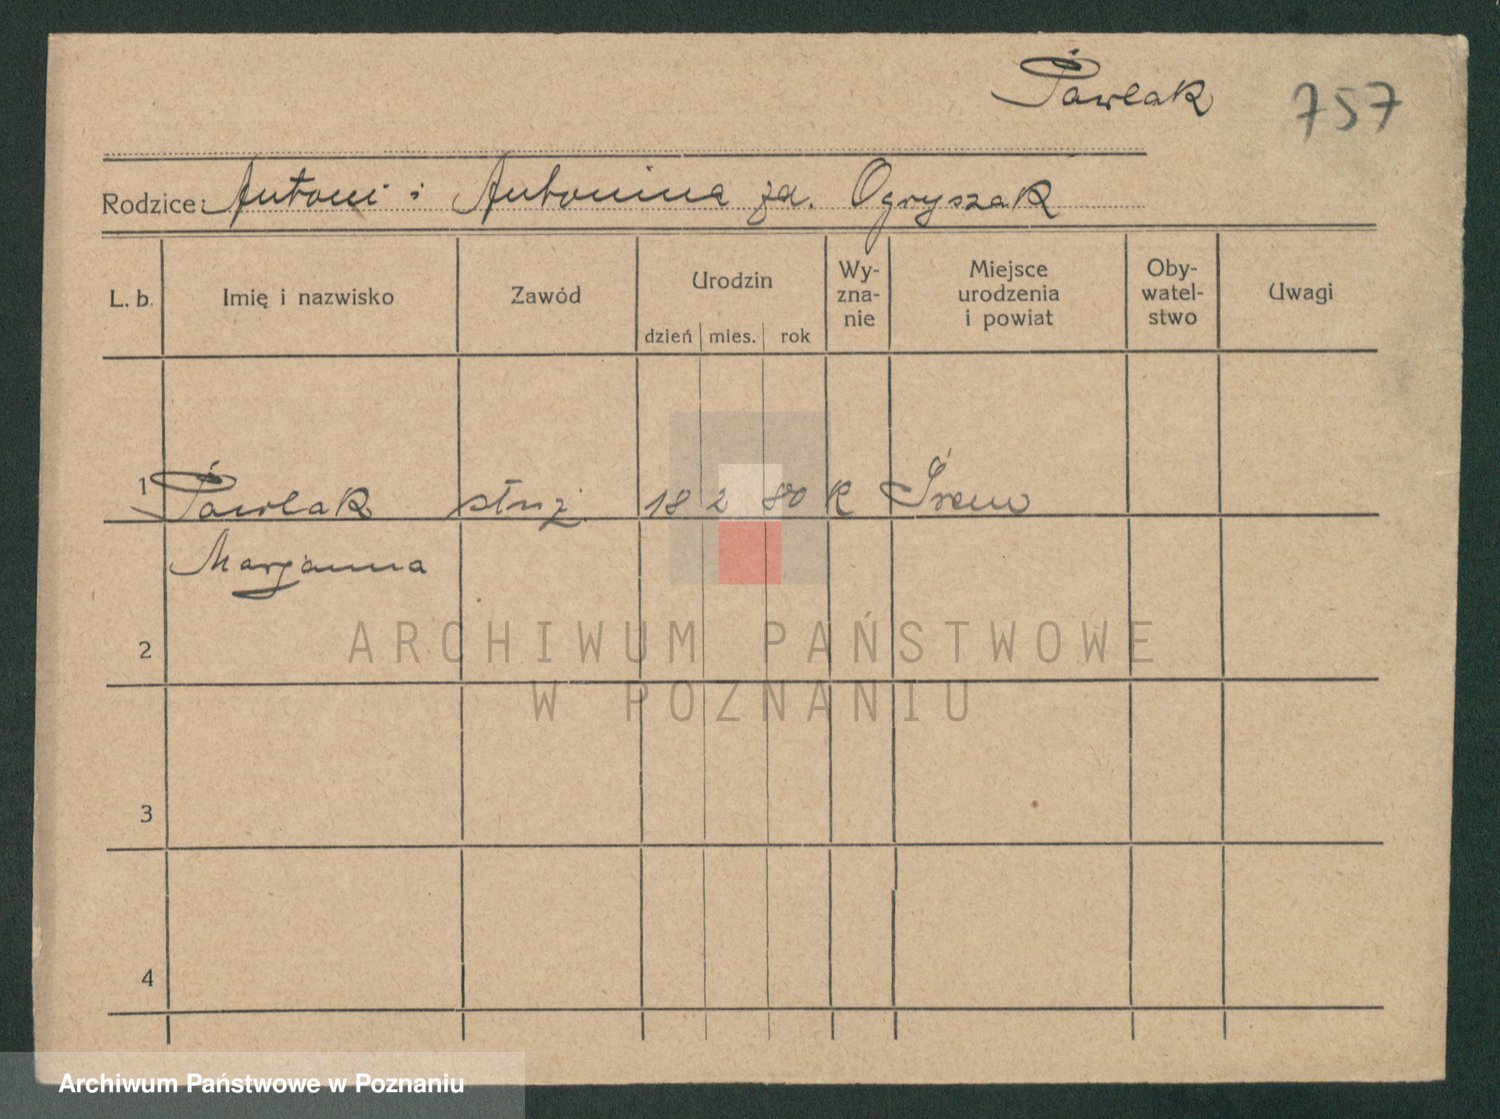 Pawlak
757
Rodzice: Antoni i Antonina zd. Ogryszak
L. b. Imię i nazwisko Zawód Urodzin dzień mies. rok Wy-zna-nie Miejsce urodzenia i powiat Oby-watel-stwo Uwagi
1 Pawlak służ. 18 2 80 K Śrem
Marjanna
2
3
4
ARCHIWUM PAŃSTWOWE
W POZNANIU
Archiwum Państwowe w Poznaniu